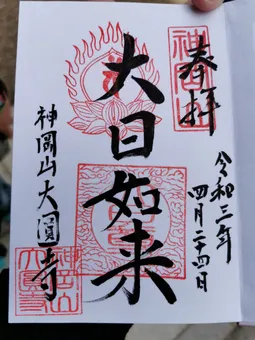 奉拝
令和三年
四月二十四日
大日如来
神岡山大圓寺
神岡山